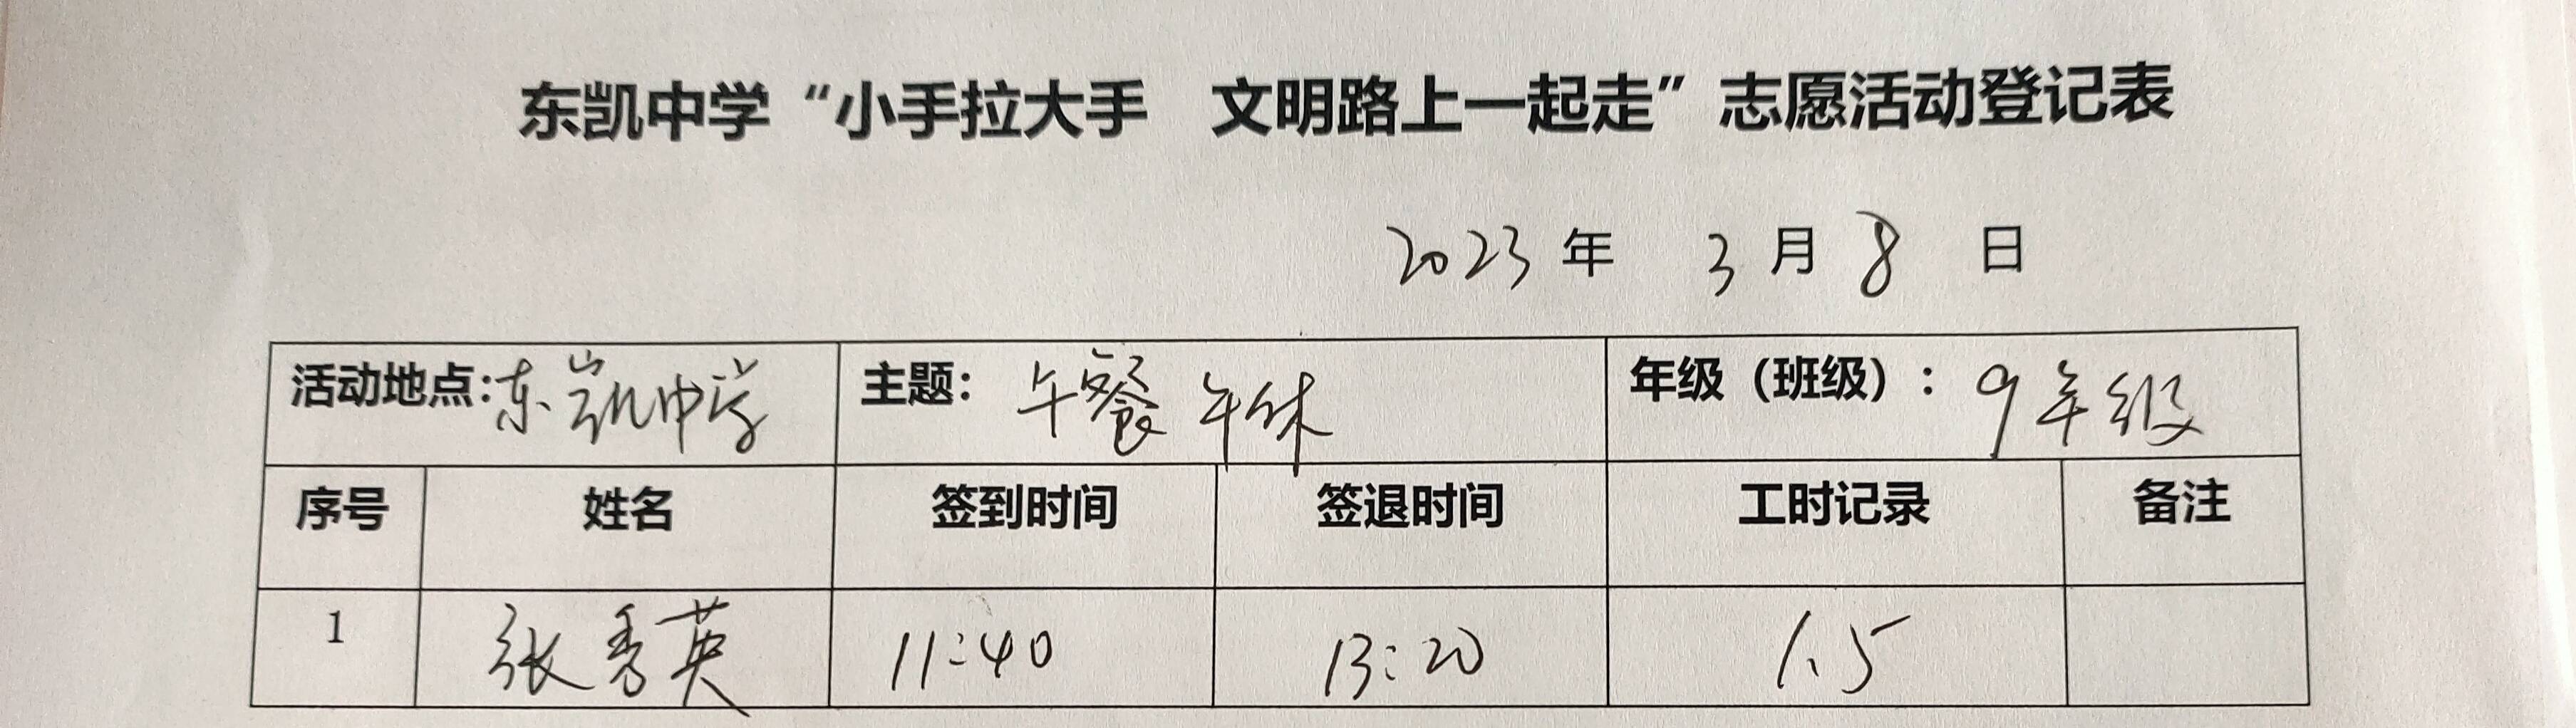 东凯中学“小手拉大手 文明路上一起走”志愿活动登记表
2023 年 3 月 8 日
活动地点:东凯中学 主题: 午餐 午休 年级（班级）: 9年级
序号 姓名 签到时间 签退时间 工时记录 备注
1 张秀英 11:40 13:20 1.5